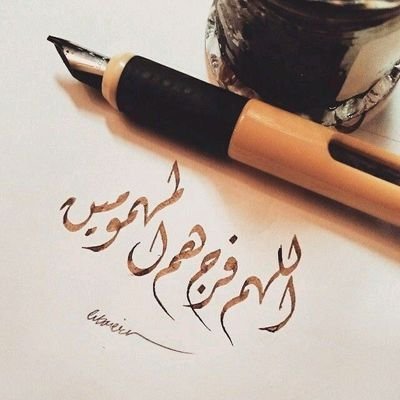 اللهم فرج هم المهمومين